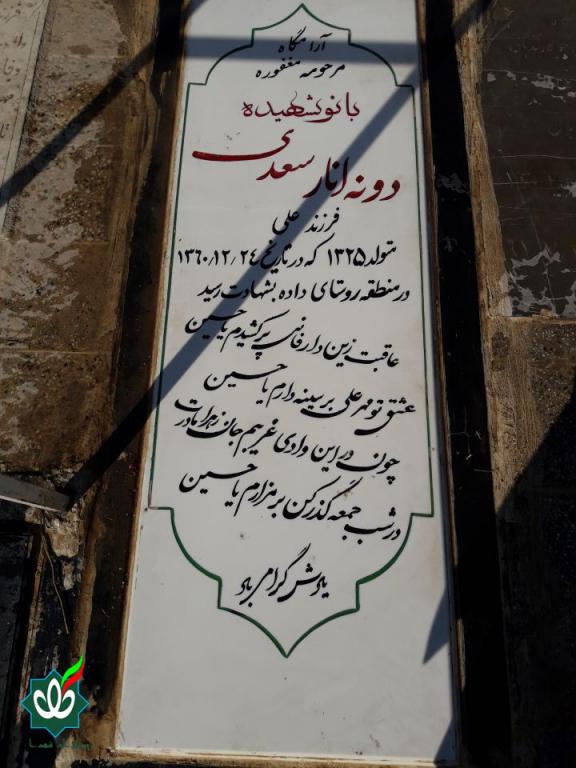 آرامگاه
مرحومه مغفوره
بانو شهیده
دونه انار سعدی
فرزند علی
متولد ۱۳۲۵ که در تاریخ ۲۴/۱۲/۱۳۶۰
در منطقه روستای داده بشهادت رسید
عاقبت زین دار فانی پر کشیدم یا حسین
عشق تو مهر علی بر سینه دارم یا حسین
چون در این وادی غریبم جان زهرا مادرت
در شب جمعه گذر کن بر مزارم یا حسین
یادش گرامی باد